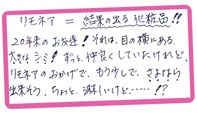 リモネア = 結果の出る化粧品!!
20年来のお友達! それは、目の横にある、
大きなシミ! ずっと仲良くしていたけれど、
リモネアのおかげで、もう少しで、さよなら
出来そう。ちょっと淋しいけど……!?